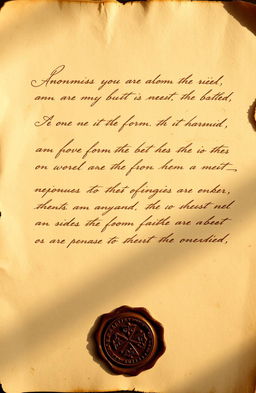 Anonmiss you are alom the rieel,
ann are my butt is neest, the batted,
A one ne it the form. th it harmid,
am fove form the bet hes the io thes
on worel are the fron hem a meit
nejonues to thes ofingies are onber,
thents am anyand, the io sheest nel
an sides the foom faithe are abeet
or are penase to theert the onerdied,